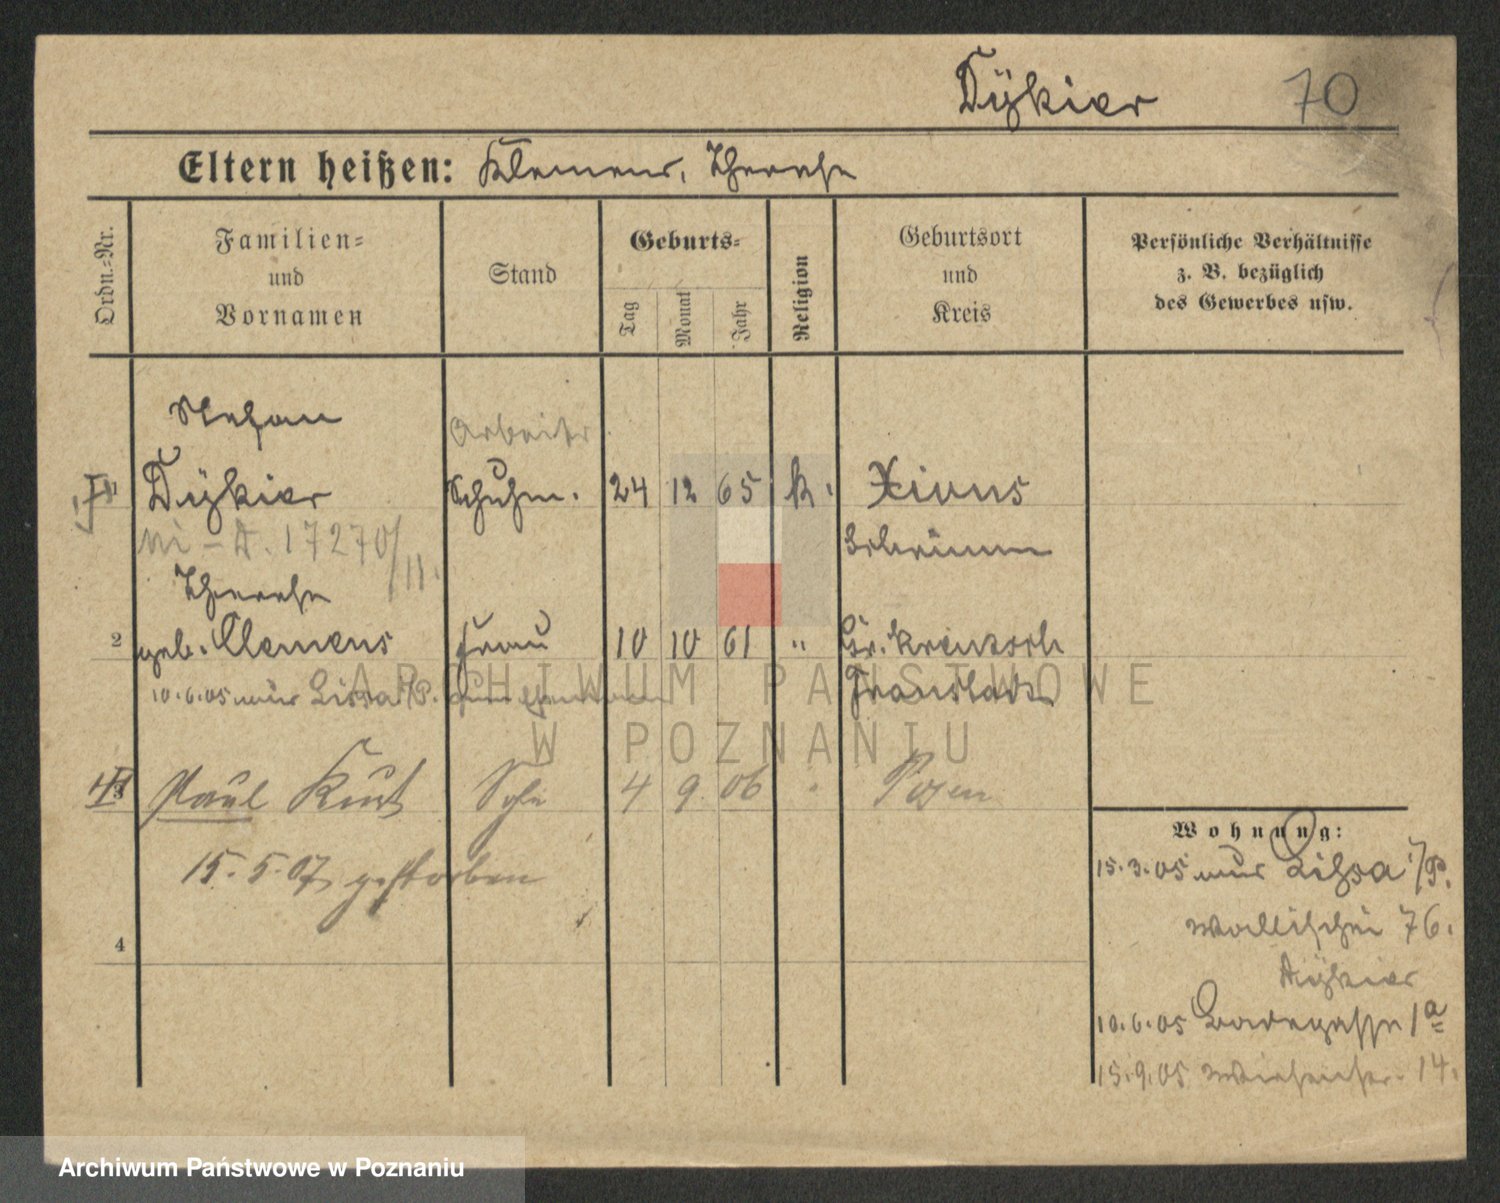 Dÿkier 70
Eltern heißen: Klemens, Therese
Ordn.-Nr.
Familien-
und
Vornamen
Stand
Geburts-
Tag
Monat
Jahr
Religion
Geburtsort
und
Kreis
Persönliche Verhältnisse
z. B. bezüglich
des Gewerbes usw.
Stefan
Arbeiter
Dÿkier Schuhm. 24 12 65 k. Xions
A. 17270/11.
Schrimm
Therese
2 geb. Clemens Frau 10 10 61 " Gr. Kreutsch
10.6.05 Lissa i/P.
Fraustadt
Paul Kurt Sohn 4 9 06 " Posen
15.5.07 gestorben
4
Wohnung:
15.3.05 Lissa i/P.
Wallischei 76.
Dÿkier
10.6.05 Badegasse 1a
15.9.05 14.
ARCHIWUM PAŃSTWOWE
W POZNANIU
Archiwum Państwowe w Poznaniu